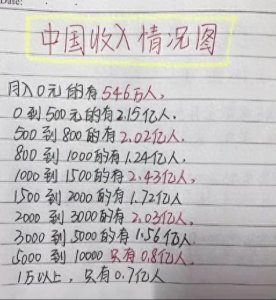 Date:
中国收入情况图
月入0元的有546万人,
0到500元的有2.15亿人.
500到800的有2.02亿人.
800到1000的有1.24亿人.
1000到1500的有2.43亿人.
1500到2000的有1.72亿人
2000到3000的有2.03亿人.
3000到5000的有1.56亿人.
5000到10000只有0.8亿人.
1万以上,只有0.7亿人